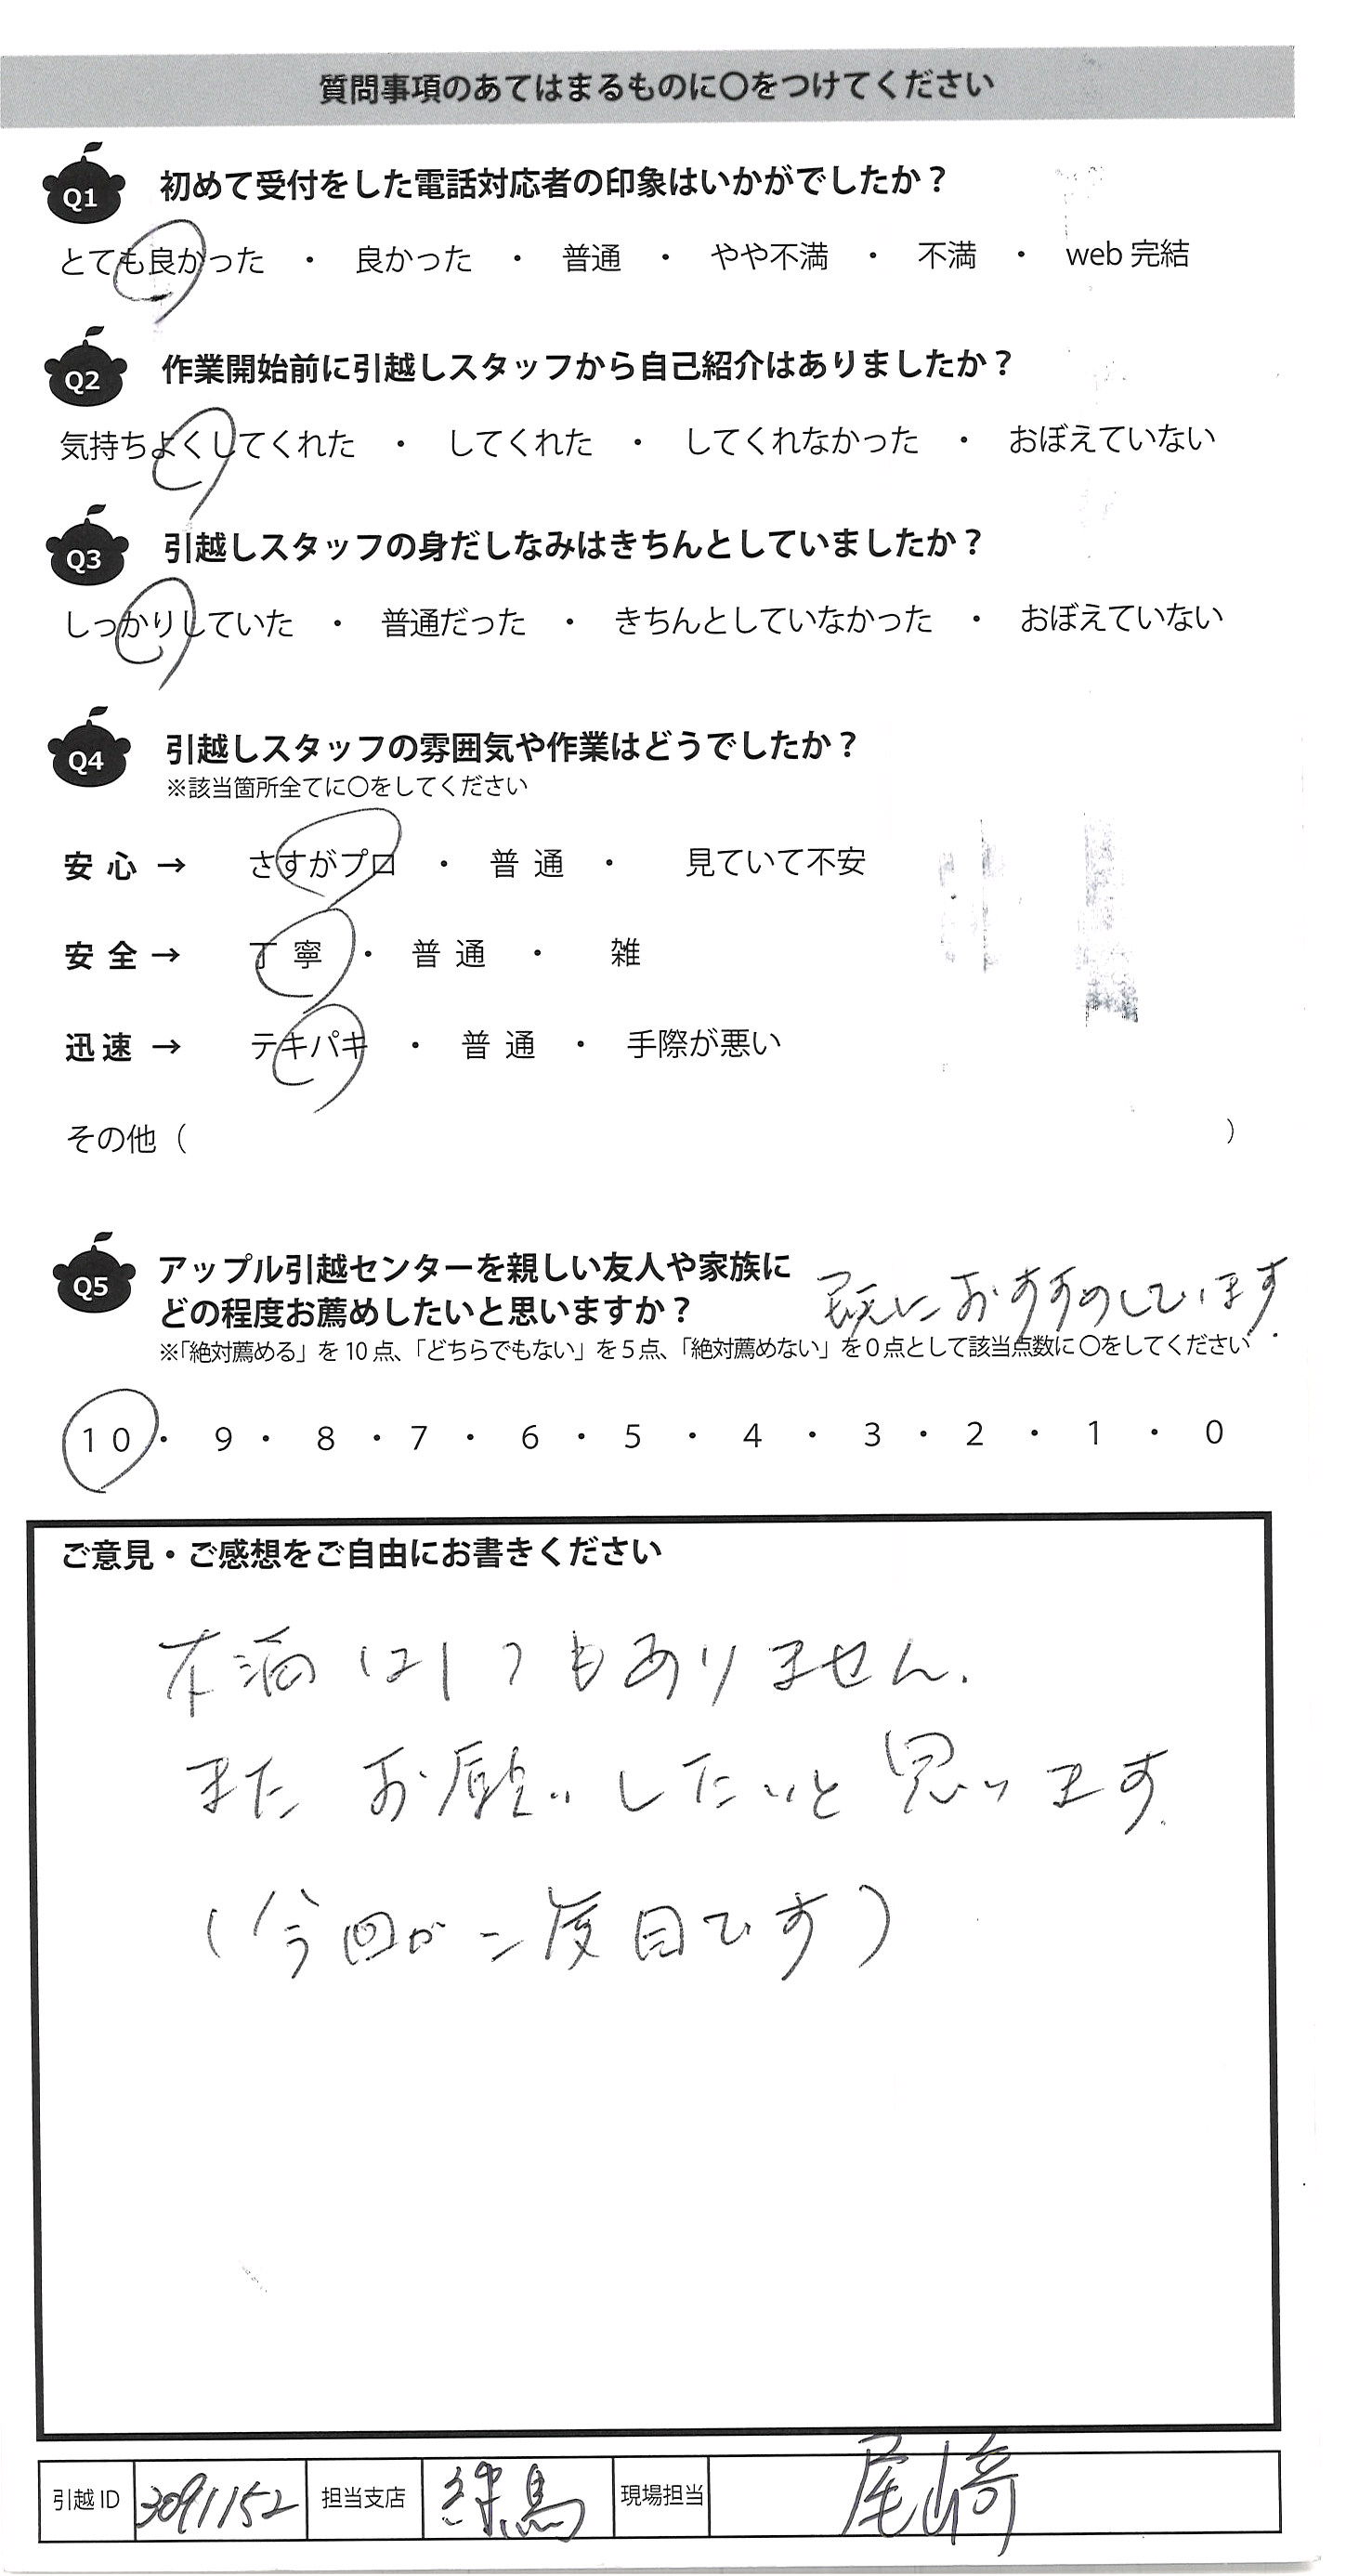 質問事項のあてはまるものに〇をつけてください
Q1 初めて受付をした電話対応者の印象はいかがでしたか？
とても良かった ・ 良かった ・ 普通 ・ やや不満 ・ 不満 ・ web 完結
Q2 作業開始前に引越しスタッフから自己紹介はありましたか？
気持ちよくしてくれた ・ してくれた ・ してくれなかった ・ おぼえていない
Q3 引越しスタッフの身だしなみはきちんとしていましたか？
しっかりしていた ・ 普通だった ・ きちんとしていなかった ・ おぼえていない
Q4 引越しスタッフの雰囲気や作業はどうでしたか？
※該当箇所全てに〇をしてください
安心 → さすがプロ ・ 普通 ・ 見ていて不安
安全 → 丁寧 ・ 普通 ・ 雑
迅速 → テキパキ ・ 普通 ・ 手際が悪い
その他（ ）
Q5 アップル引越センターを親しい友人や家族に
どの程度お薦めしたいと思いますか？
既におすすめしています.
※「絶対薦める」を10点、「どちらでもない」を5点、「絶対薦めない」を0点として該当点数に〇をしてください
10 ・ 9 ・ 8 ・ 7 ・ 6 ・ 5 ・ 4 ・ 3 ・ 2 ・ 1 ・ 0
ご意見・ご感想をご自由にお書きください
不満は1つもありません.
またお願いしたいと思います.
（今回が二度目です）
引越ID 3091152 担当支店 練馬 現場担当 尾崎